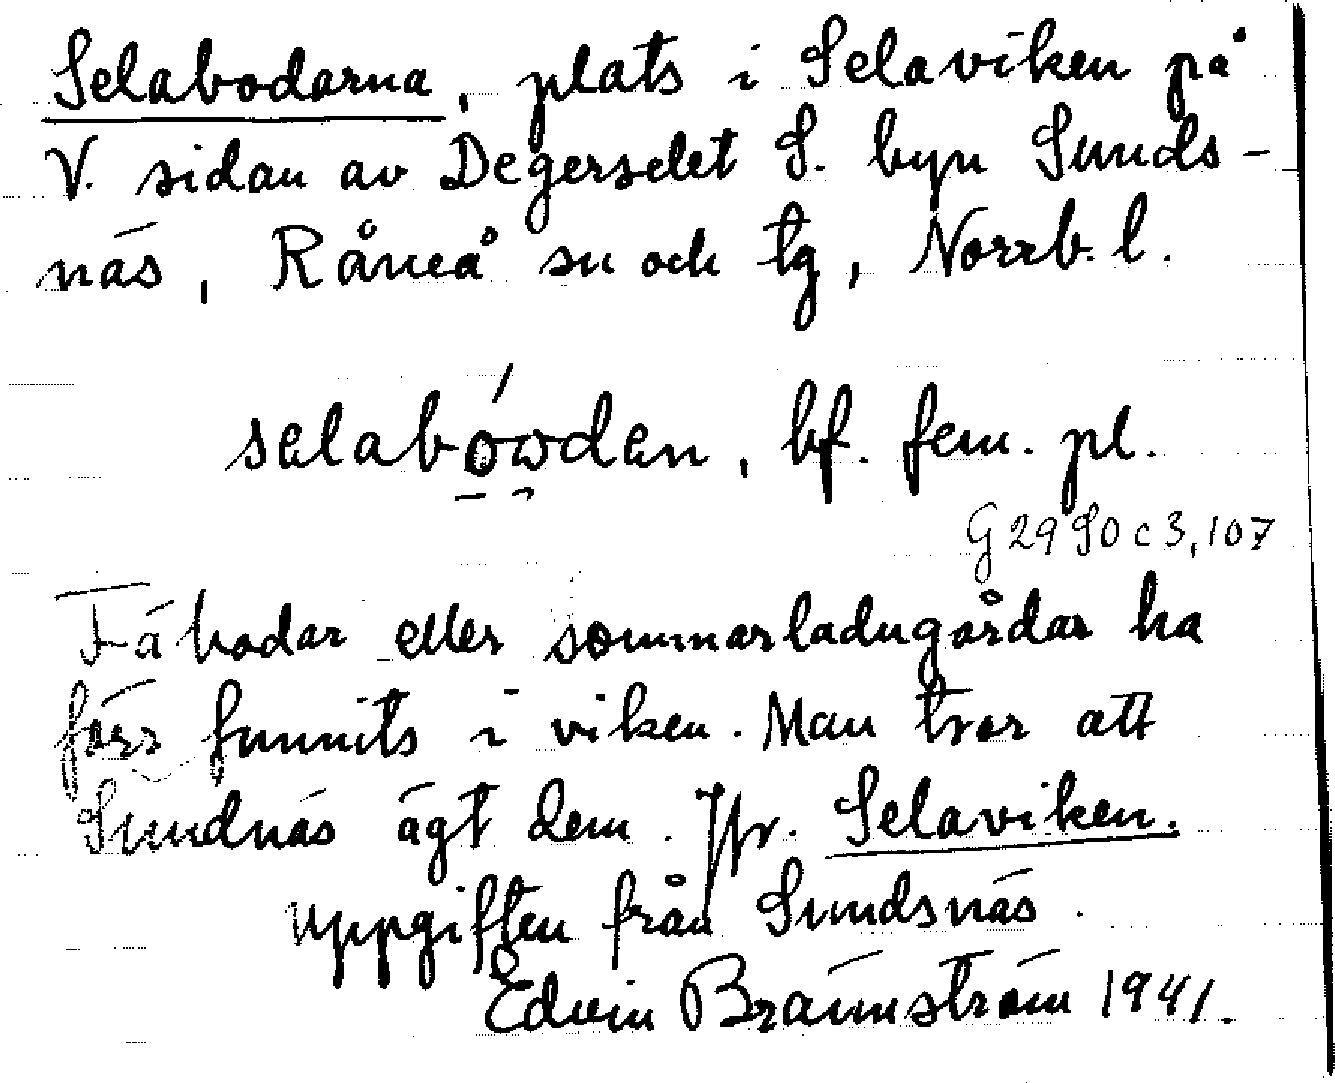 Selabodarna, plats i Selaviken på
V. sidan av Degerselet S. byn Sunds-
näs, Råneå sn och tg, Norrb. l.
selabówden, bf. fem. pl.
G 29 SO c 3, 107
Fäbodar eller sommarladugårdar ha
förr funnits i viken. Man tror att
Sundnäs ägt dem. Jfr. Selaviken.
Uppgiften från Sundsnäs.
Edvin Brännström 1941.